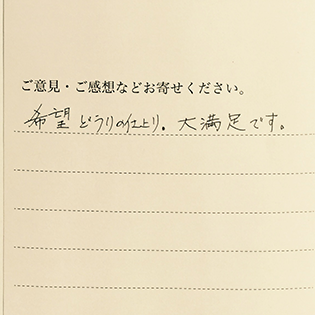 ご意見・ご感想などお寄せください。
希望どうりの仕上り。大満足です。